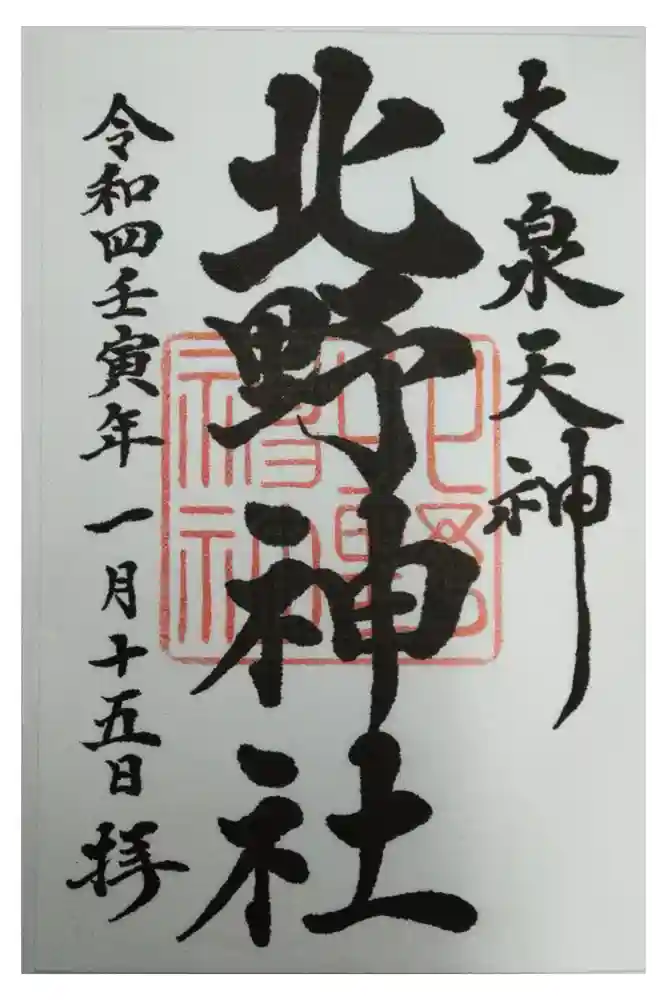 大泉天神
北野神社
令和四壬寅年 一月十五日 拝
北野神社